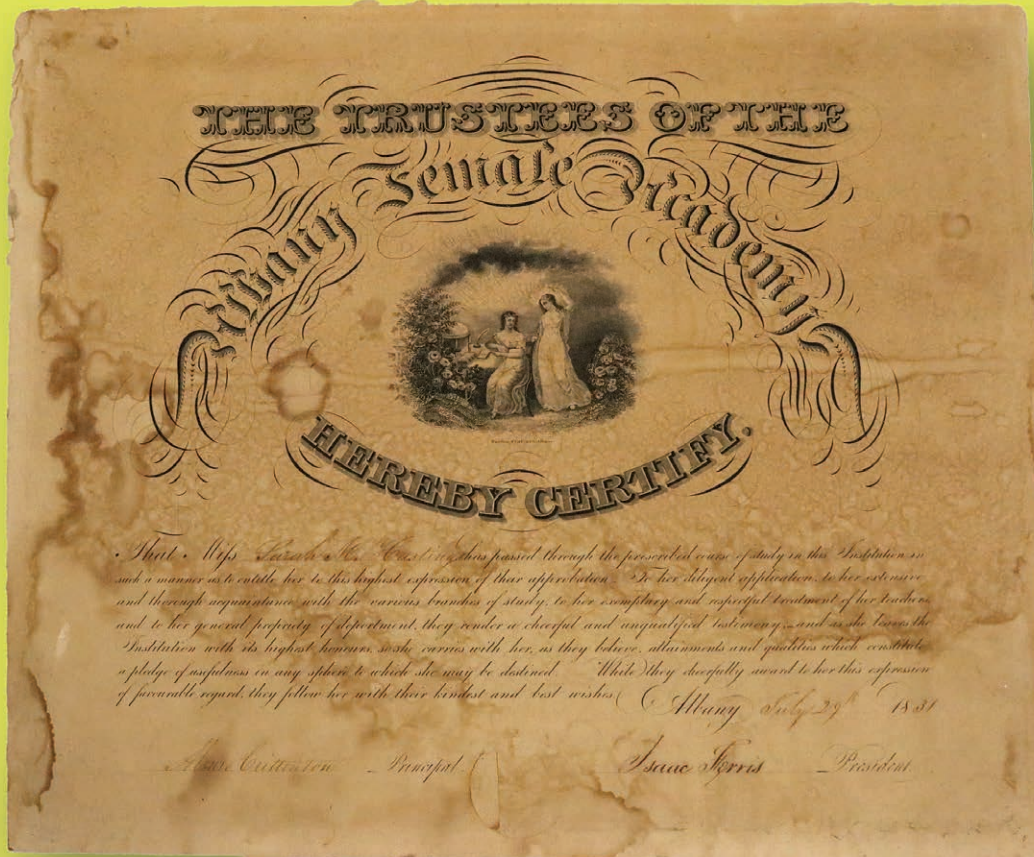 THE TRUSTEES OF THE
Albany Female Academy
HEREBY CERTIFY.
That Miss Sarah has passed through the prescribed course of study in this Institution in
such a manner as to entitle her to this highest expression of their approbation. To her diligent application, to her extensive
and thorough acquaintance with the various branches of study, to her exemplary and respectful treatment of her teachers,
and to her general propriety of deportment, they render a cheerful and unqualified testimony, and as she leaves the
Institution with its highest honours, so she carries with her, as they believe, attainments and qualities which constitute
a pledge of usefulness in any sphere to which she may be destined. While they cheerfully award to her this expression
of favourable regard, they follow her with their kindest and best wishes. Albany July 29th
Crittenton Principal. Isaac Ferris President.